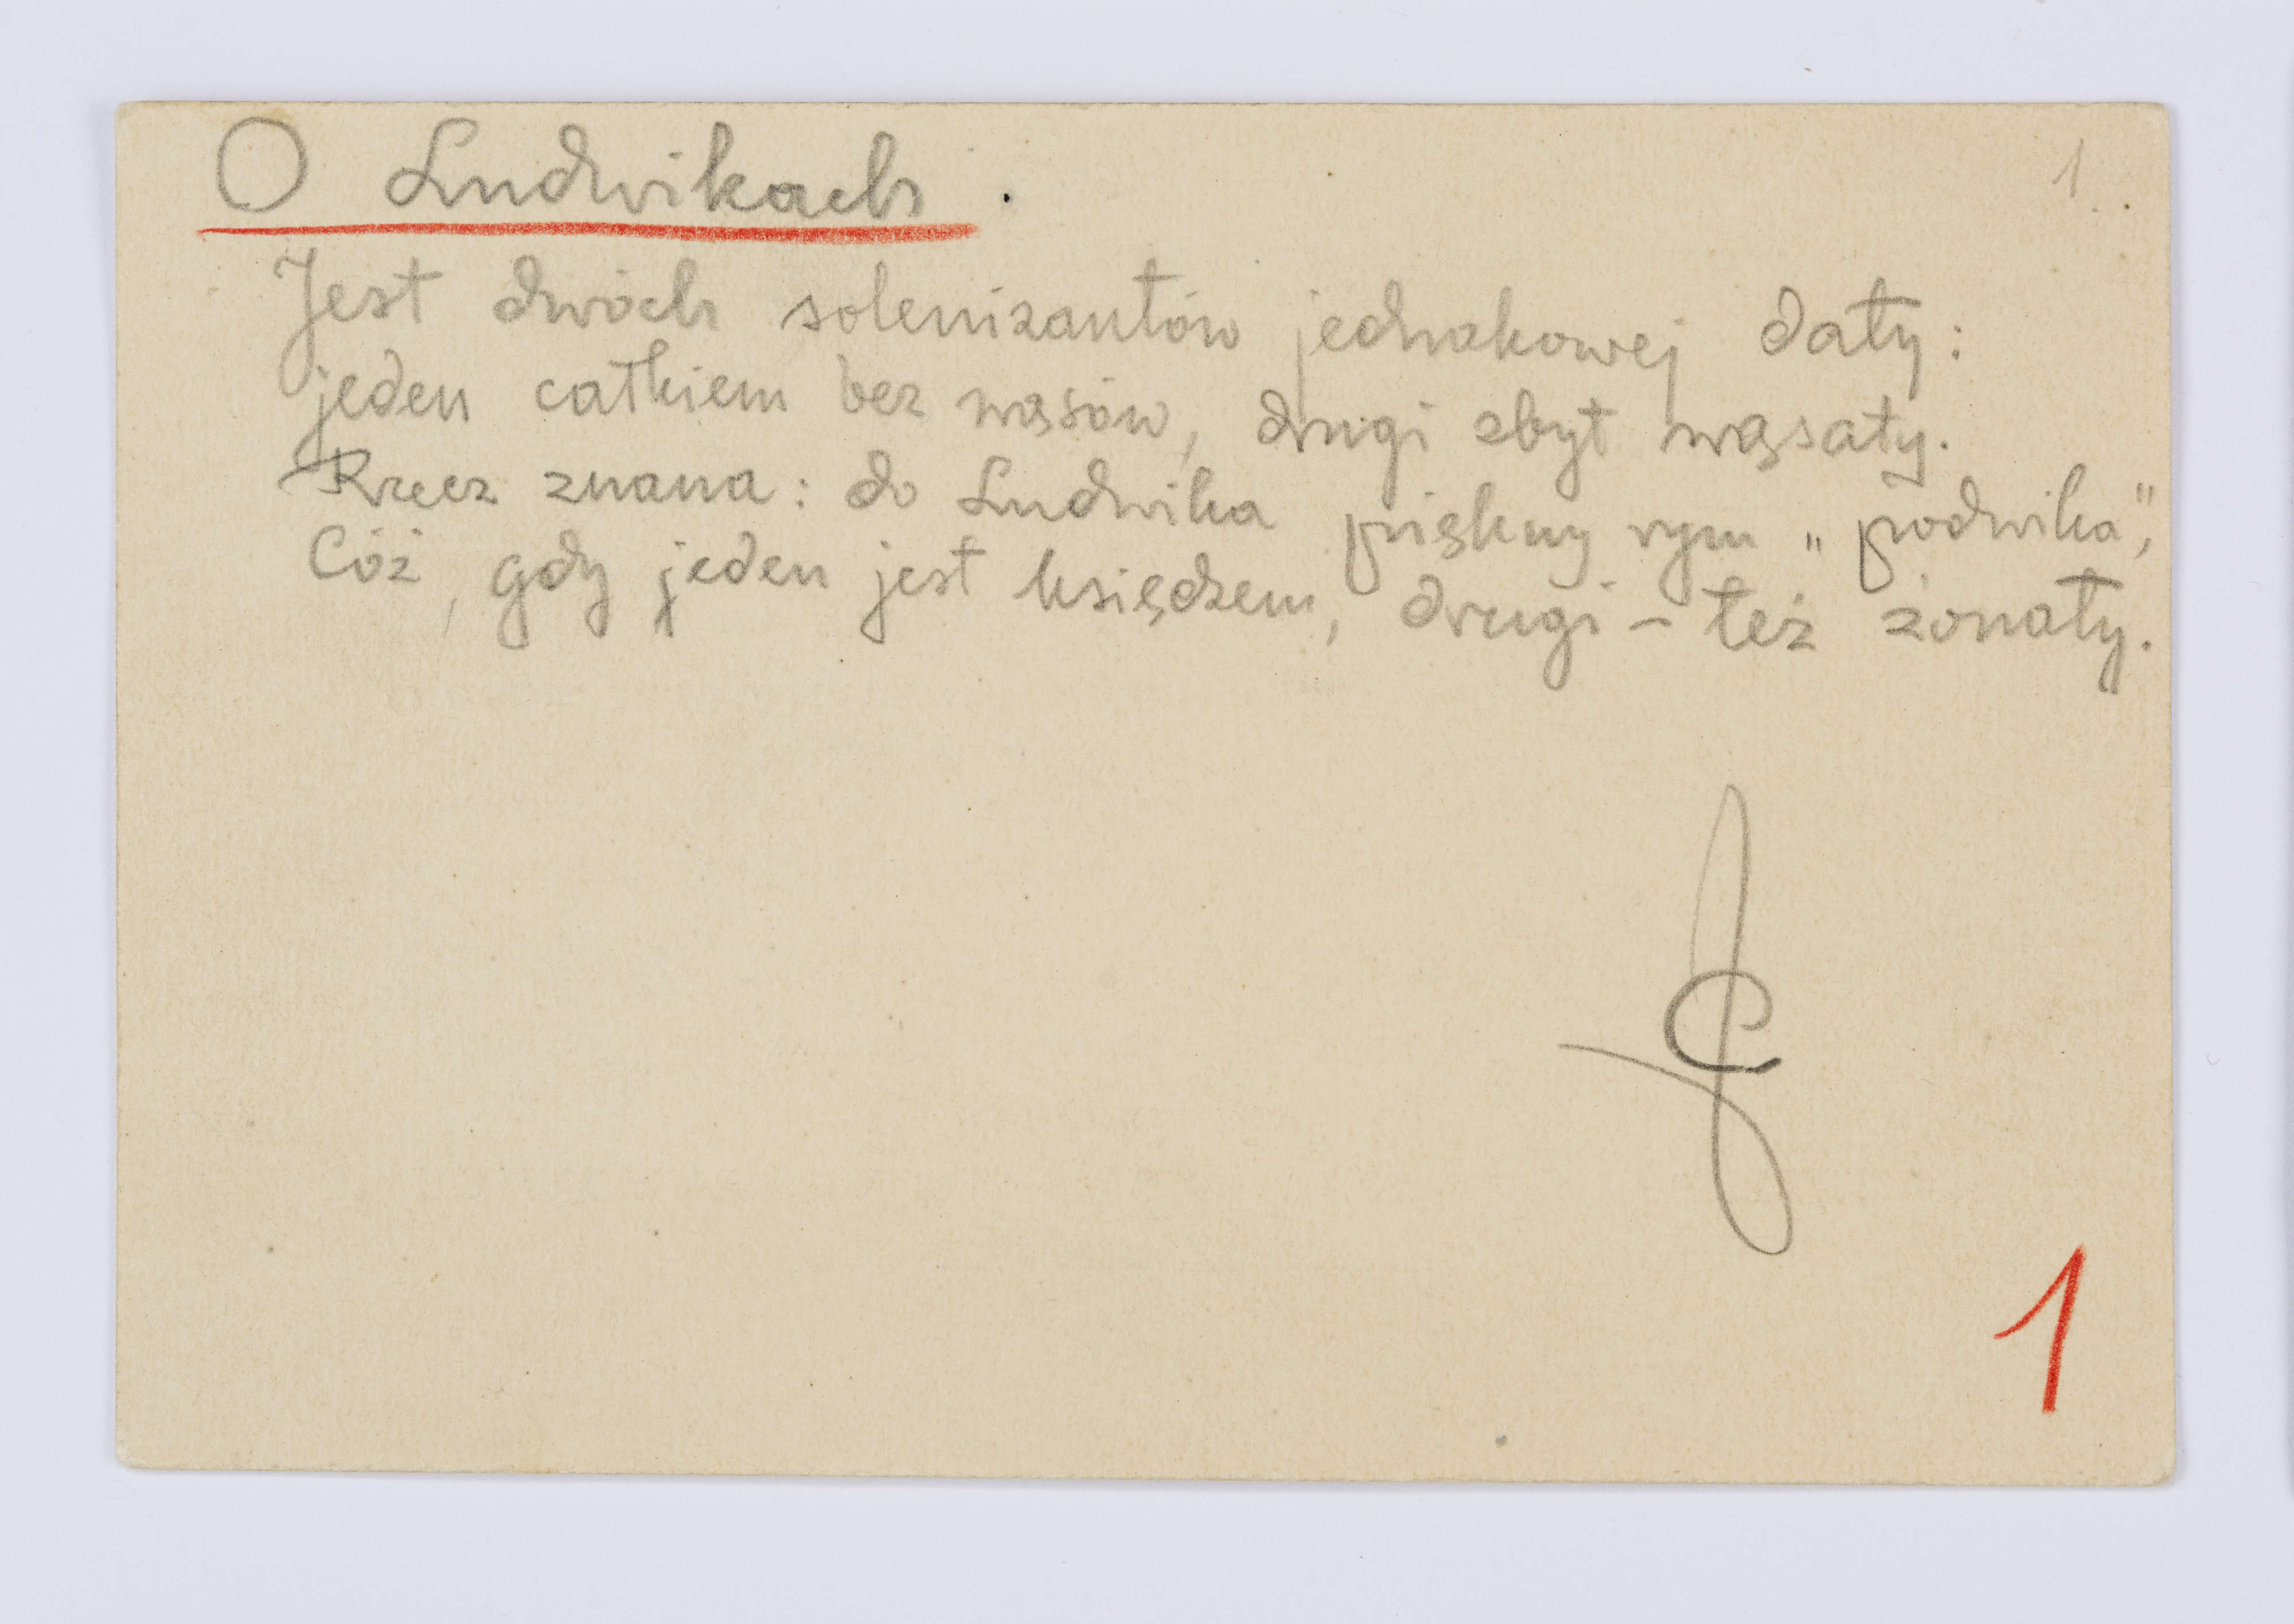 O Ludwikach.
1.
Jest dwóch solenizantów jednakowej daty:
jeden całkiem bez wąsów, drugi zbyt wąsaty.
Rzecz znana: do Ludwika piękny rym „podwika”,
Cóż, gdy jeden jest księdzem, drugi – też żonaty.
1